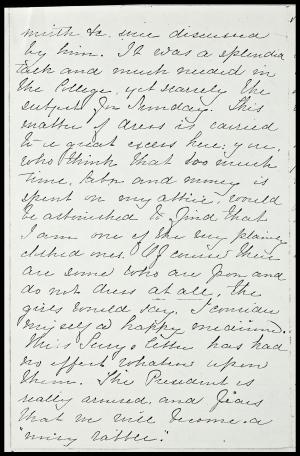 mirth &c. were discussed
by him. It was a splendid
talk and much needed in
the College, yet scarcely the
subject for Sunday. This
matter of dress is carried
to a great excess here; you,
who think that too much
time, labor and money is
spent on my attire, would
be astonished to find that
I am one of the very plainly
clothed ones. Of course there
are some who are poor and
do not dress at all, the
girls would say. I consider
myself a happy medium.
This Percy's letter has had
no effect whatever upon
them. The President is
really aroused, and fears
that we will become a
"miry rabble."